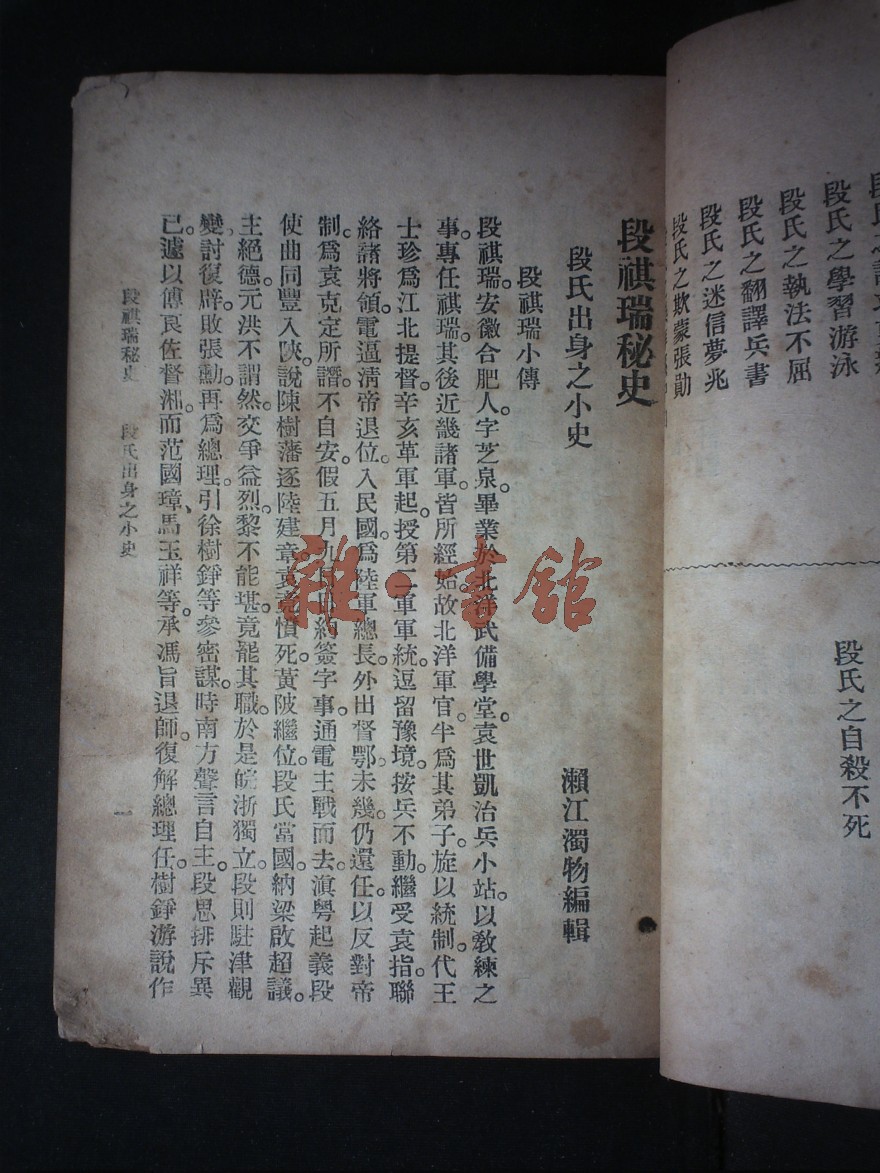 段氏之學習游泳
段氏之執法不屈
段氏之翻譯兵書
段氏之迷信夢兆
段氏之欺蒙張勛
段氏之自殺不死
段祺瑞秘史
段氏出身之小史
瀨江濁物編輯
段祺瑞小傳
段祺瑞。安徽合肥人。字芝泉。畢業於北洋武備學堂。袁世凱治兵小站。以教練之
事。專任祺瑞。其後近畿諸軍。皆所經始。故北洋軍官。半爲其弟子。旋以統制。代王
士珍爲江北提督。辛亥革軍起。授第二軍軍統。逗留豫境。按兵不動。繼受袁指。聯
絡諸將領。電逼淸帝退位。入民國。爲陸軍總長。外出督鄂。未幾。仍還任。以反對帝
制。爲袁克定所譖。不自安。假五月九日 約簽字事。通電主戰而去。滇粵起義。段
使曲同豐入陝。說陳樹藩逐陸建章。袁竟憤死。黃陂繼位。段氏當國。納梁啟超議。
主絕德。元洪不謂然。交爭益烈。黎不能堪。竟罷其職。於是皖浙獨立。段則駐津觀
變。討復辟。敗張勳。再爲總理。引徐樹錚等參密謀。時南方聲言自主。段思排斥異
已。遽以傅良佐督湘。而范國璋、馬玉祥等。承馮旨退師。復解總理任。樹錚游說作
段祺瑞秘史 段氏出身之小史
一
雜·書館